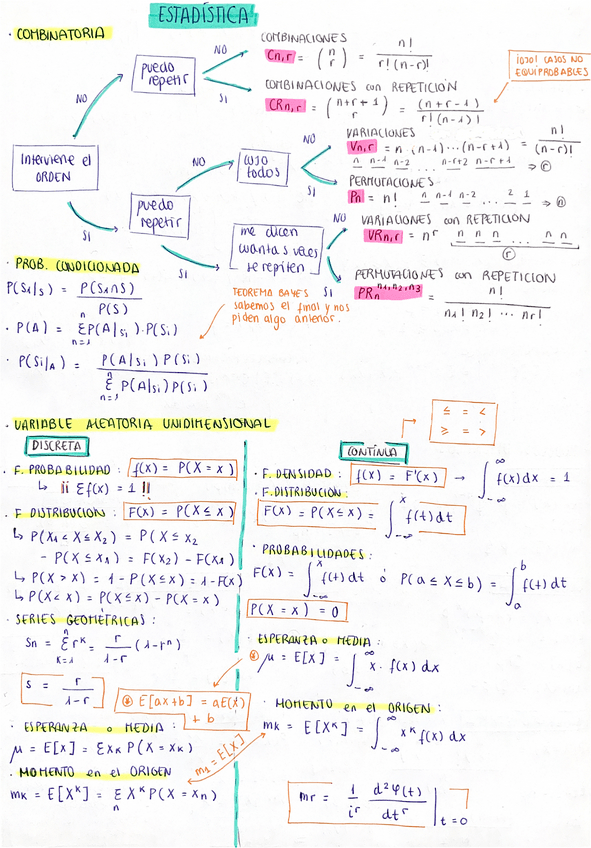 ESTADÍSTICA
· COMBINATORIA
Interviene el ORDEN
NO
SI
puedo repetir
NO
SI
COMBINACIONES
Cn,r = (n r) = n! / r!(n-r)!
COMBINACIONES con REPETICIÓN
CRn,r = (n+r+1 r) = (n+r-1) / r!(n-1)!
¡OJO! CASOS NO EQUIPROBABLES
puedo repetir
NO
SI
uso todos
NO
SI
VARIACIONES
Vn,r = n (n-1)...(n-r+1) = n! / (n-r)!
n n-1 n-2 ... n-r+2 n-r+1 ⇒ r
PERMUTACIONES
Pn = n! n n-1 n-2 ... 2 1 ⇒ n
me dicen cuantas veces se repiten
NO
SI
VARIACIONES con REPETICION
VRn,r = n^r n n n ... n n
r
PERMUTACIONES con REPETICION
PRn^n1,n2,n3 = n! / n1! n2! ... nr!
· PROB. CONDICIONADA
P(S1/S) = P(S1∩S) / P(S)
· P(A) = Σ n=1 n P(A|Si)·P(Si)
· P(Si/A) = P(A|Si) P(Si) / Σ n=1 n P(A|Si) P(Si)
TEOREMA BAYES
sabemos el final y nos
piden algo anterior.
· VARIABLE ALEATORIA UNIDIMENSIONAL
DISCRETA
· F. PROBABILIDAD: f(x) = P(X = x)
↳ ¡¡ Σf(x) = 1 !!
· F DISTRIBUCION: F(x) = P(X ≤ x)
↳ P(X1 < X ≤ X2) = P(X ≤ X2
- P(X ≤ X1) = F(X2) - F(X1)
↳ P(X > x) = 1 - P(X ≤ x) = 1 - F(x)
↳ P(X < x) = P(X ≤ x) - P(X = x)
· SERIES GEOMÉTRICAS:
Sn = Σ K=1 n r^K = r / 1-r (1-r^n)
S = r / 1-r
⊛ E[ax+b] = aE(x) + b
· ESPERANZA o MEDIA:
μ = E[x] = ΣXK P(X = XK)
· MOMENTO en el ORIGEN
mK = E[X^K] = Σ n X^K P(X = Xn)
m1 = E[X]
CONTINUA
≤ = <
≥ = >
· F. DENSIDAD: f(x) = F'(x) → ∫ -∞ ∞ f(x)dx = 1
· F. DISTRIBUCION:
F(x) = P(X ≤ x) = ∫ -∞ x f(t)dt
· PROBABILIDADES:
F(x) = ∫ -∞ x f(t)dt ó P(a ≤ X ≤ b) = ∫ a b f(t)dt
P(X = x) = 0
· ESPERANZA o MEDIA:
⊛ μ = E[X] = ∫ -∞ ∞ x · f(x) dx
· MOMENTO en el ORIGEN:
mK = E[X^K] = ∫ -∞ ∞ x^K f(x) dx
mr = 1 / i^r d²φ(t) / dt^r | t=0